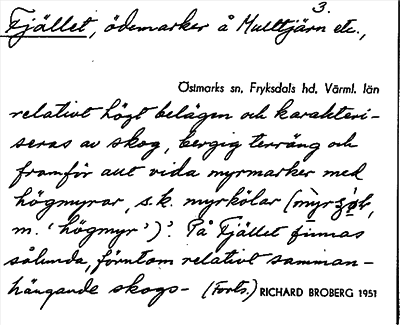 3.
Fjället, ödemarker å Multtjärn etc.,
Östmarks sn, Fryksdals hd, Värml. län
relativt högt belägen och karakteri-
seras av skog, bergig terräng och
framför allt vida myrmarker med
högmyrar, s.k. myrkölar
m. 'högmyr')'. På Fjället finnas
sålunda, förutom relativt samman-
hängande skogs- (Forts.) RICHARD BROBERG 1951